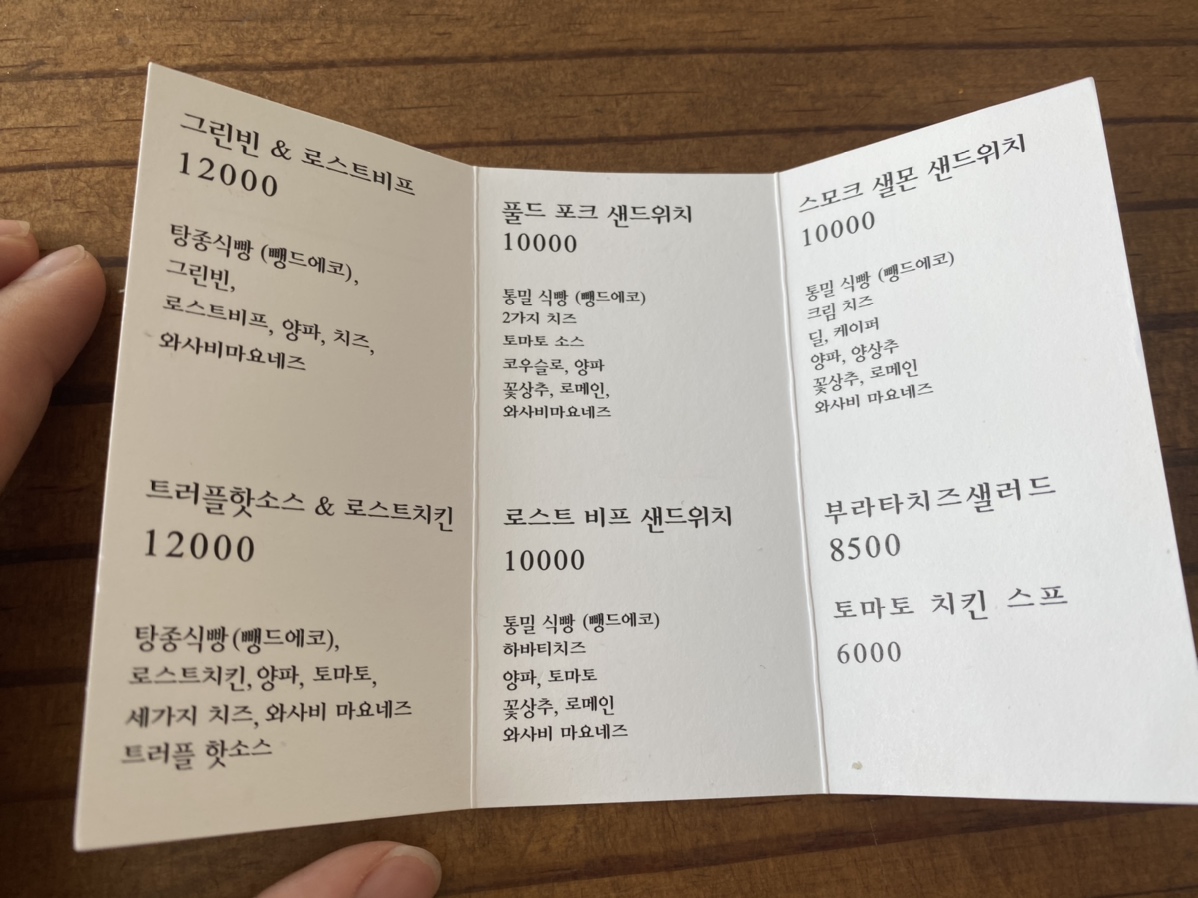 그린빈 & 로스트비프
12000
탕종식빵 (뺑드에코),
그린빈,
로스트비프, 양파, 치즈,
와사비마요네즈
트러플핫소스 & 로스트치킨
12000
탕종식빵(뺑드에코),
로스트치킨, 양파, 토마토,
세가지 치즈, 와사비 마요네즈
트러플 핫소스
풀드 포크 샌드위치
10000
통밀 식빵 (뺑드에코)
2가지 치즈
토마토 소스
코우슬로, 양파
꽃상추, 로메인,
와사비마요네즈
로스트 비프 샌드위치
10000
통밀 식빵 (뺑드에코)
하바티치즈
양파, 토마토
꽃상추, 로메인
와사비 마요네즈
스모크 샐몬 샌드위치
10000
통밀 식빵 (뺑드에코)
크림 치즈
딜, 케이퍼
양파, 양상추
꽃상추, 로메인
와사비 마요네즈
부라타치즈샐러드
8500
토마토 치킨 스프
6000